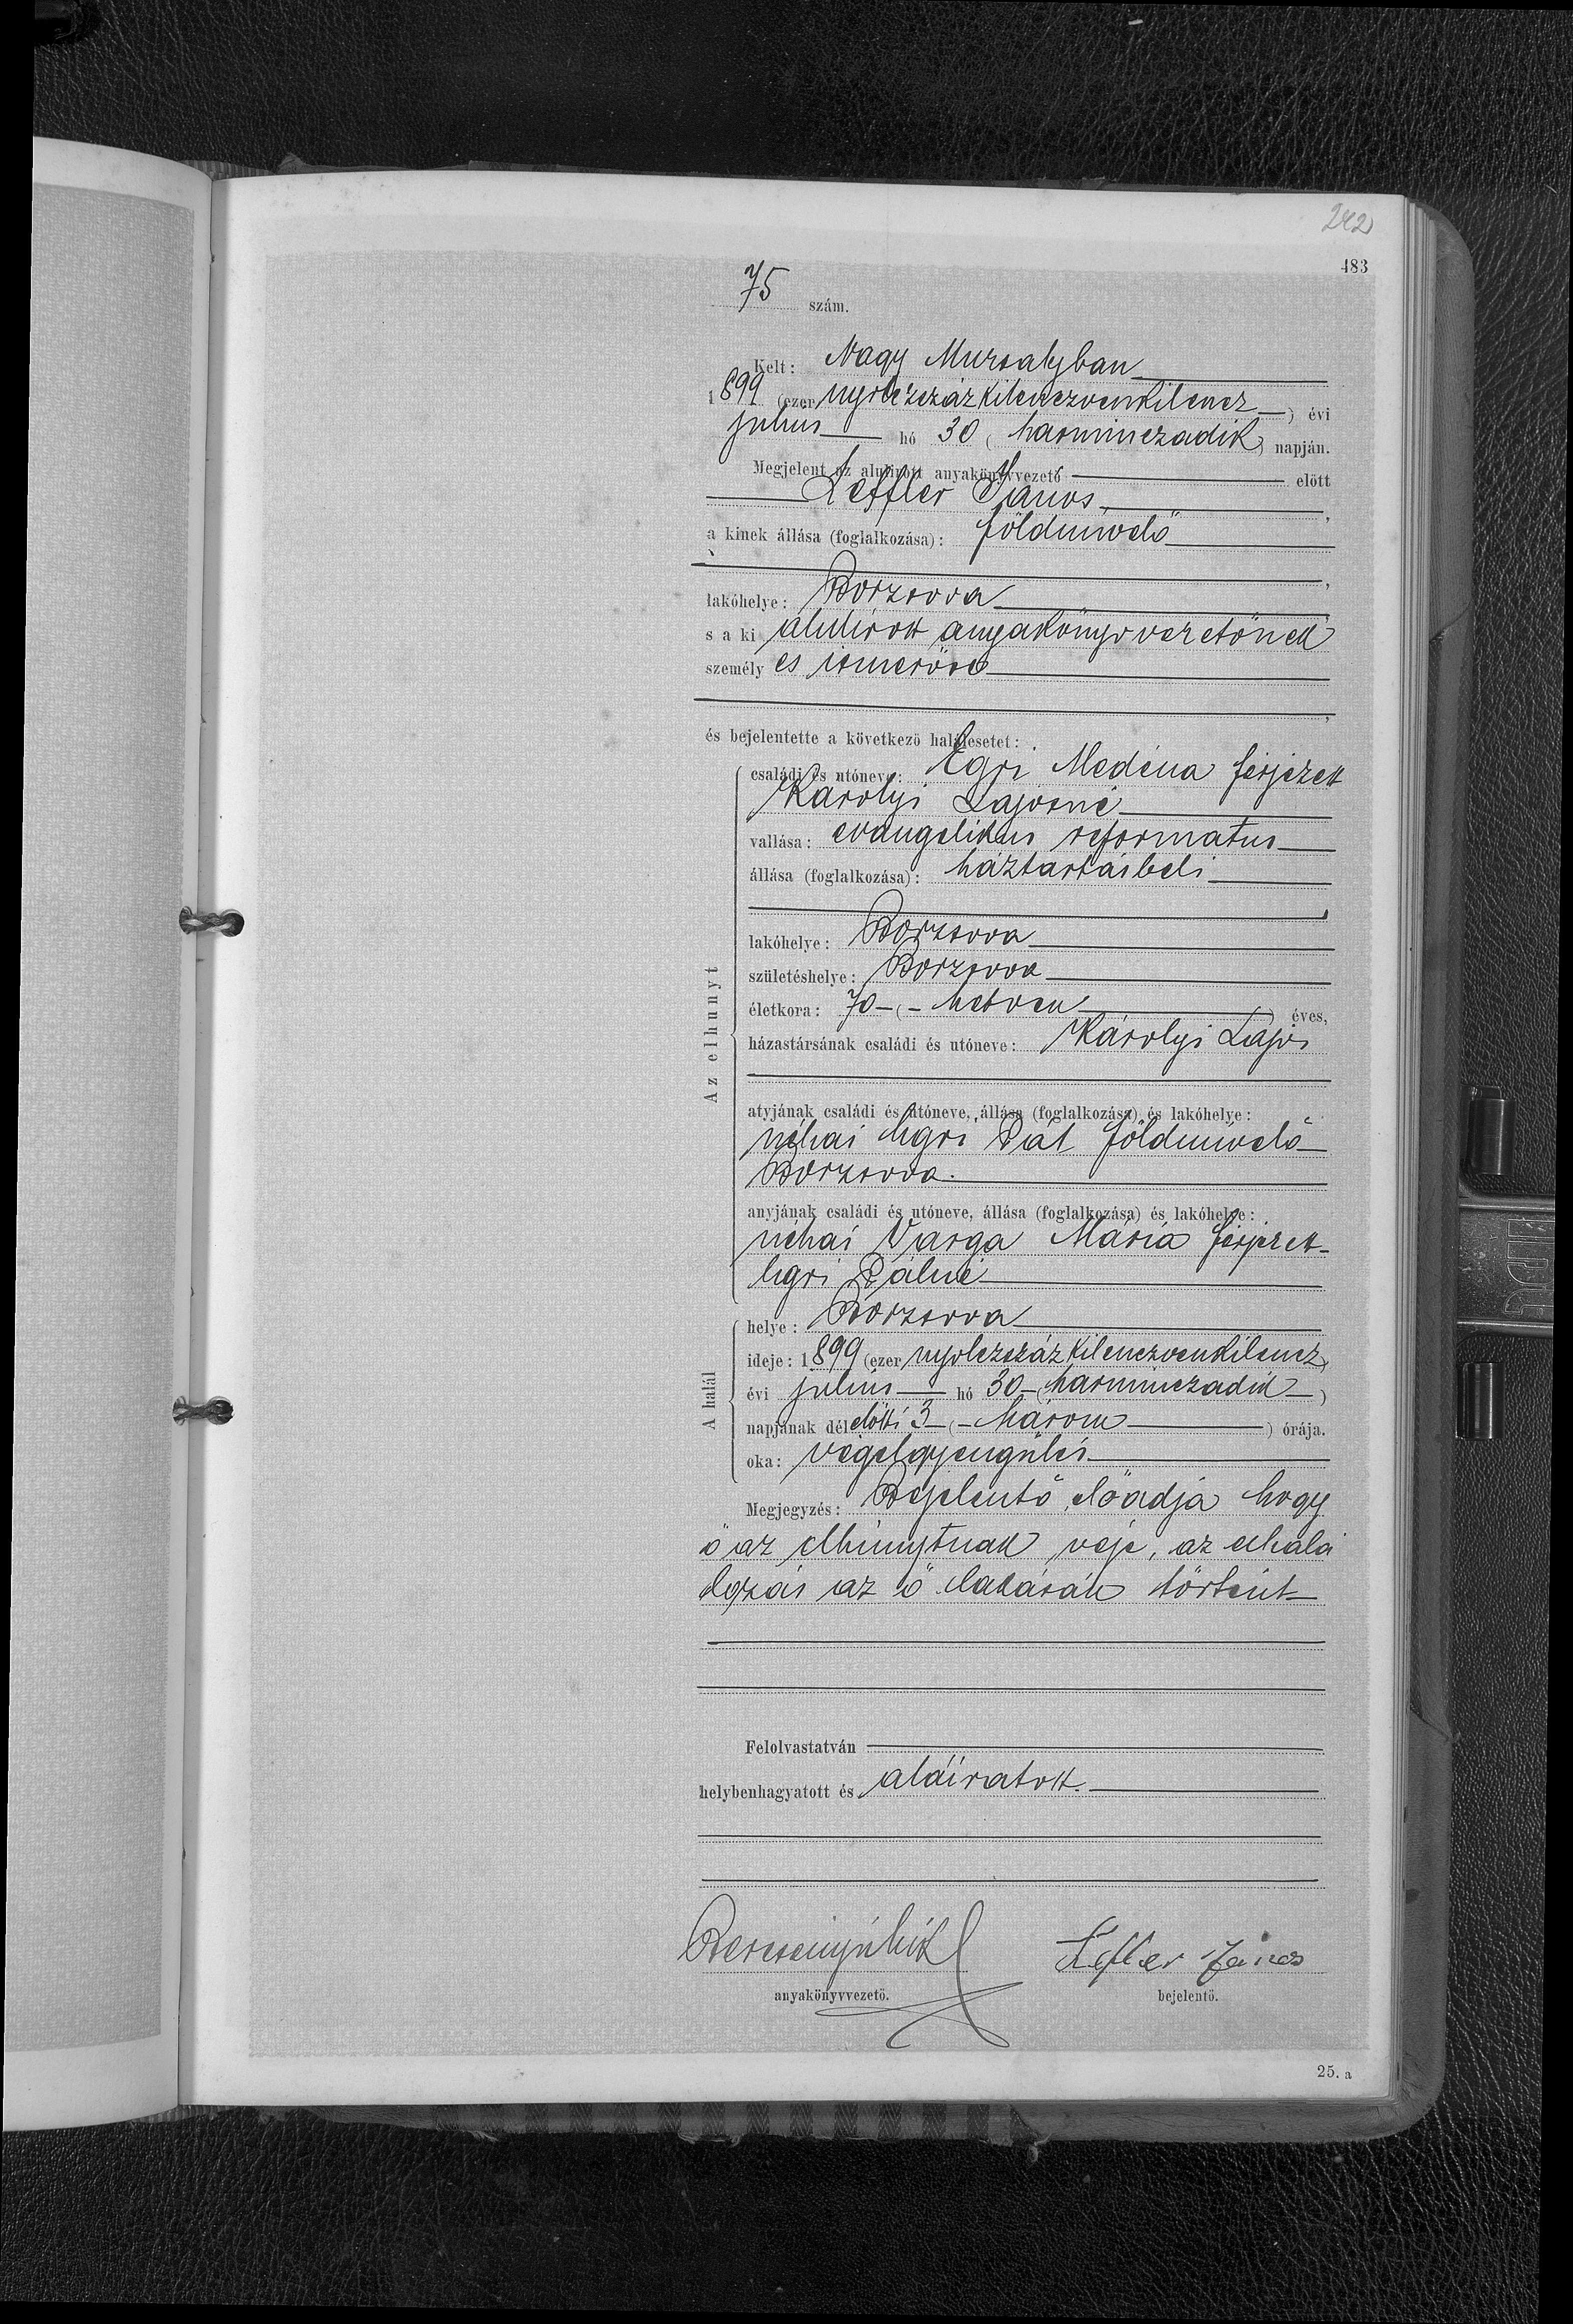 242
483
75 szám.
Kelt: Nagy Muzsalyban
1899 (ezer nyolczszázkilenczvenkilencz) évi
julius hó 30 (harminczadik) napján.
Megjelent az alulirott anyakönyvvezető előtt
Leffler János,
a kinek állása (foglalkozása): földmivelő
lakóhelye: Borzsova
s a ki alulirott anyakönyvvezetőnek
személyes ismerőse
és bejelentette a következő halálesetet:
Az elhunyt
családi és utóneve: Egri Medéna férjezett
Károlyi Lajosné
vallása: evangelikus reformatus
állása (foglalkozása): háztartásbeli
lakóhelye: Borzsova
születéshelye: Borzsova
életkora: 70 (hetven) éves,
házastársának családi és utóneve: Károlyi Lajos
atyjának családi és utóneve, állása (foglalkozása) és lakóhelye:
néhai Egri Pál földmivelő
Borzsova.
anyjának családi és utóneve, állása (foglalkozása) és lakóhelye:
néhai Varga Mária férjezett
Egri Pálné
A halál
helye: Borzsova
ideje: 1899 (ezer nyolczszázkilenczvenkilencz)
évi julius hó 30 (harminczadik)
napjának délelőtti 3 (három) órája.
oka: végelgyengülés
Megjegyzés: Bejelentő előadja hogy
ő az elhunytnak veje, az elhalá
lozás az ő lakásán történt
Felolvastatván
helybenhagyatott és aláiratott.
Leffler János
anyakönyvvezető. bejelentő.
25. a